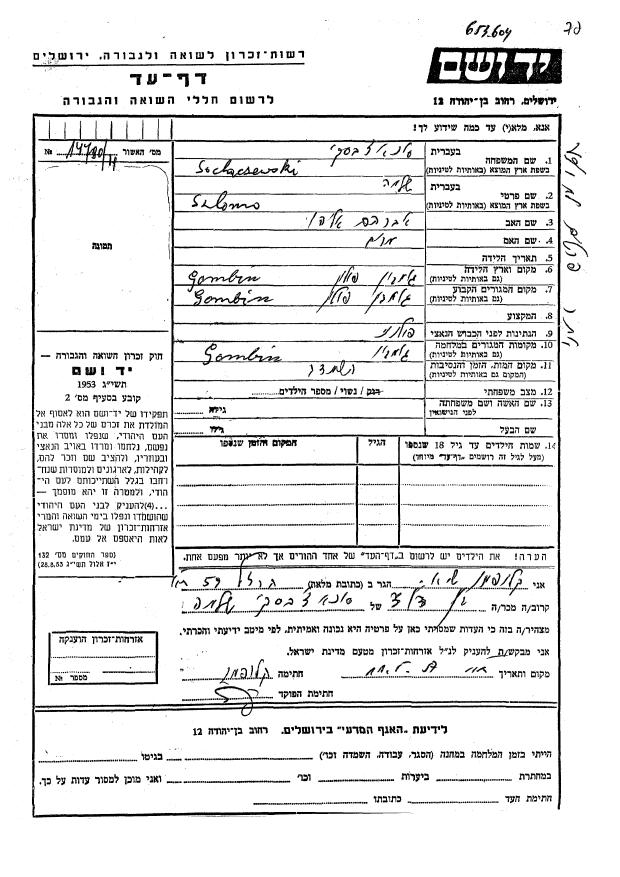 653.604
יד ושם
ירושלים, רחוב בן-יהודה 12
רשות-זכרון לשואה ולגבורה, ירושלים
דף-עד
לרשום חללי השואה והגבורה
אנא, מלא(י) עד כמה שידוע לך!
מס' האשור № 14780
1. שם המשפחה
בעברית
בשפת ארץ המוצא (באותיות לטיניות)
Sochaczewski
2. שם פרטי
בעברית שלמה
בשפת ארץ המוצא (באותיות לטיניות)
Szlomo
3. שם האב אברהם
4. שם האם מרים
5. תאריך הלידה
6. מקום וארץ הלידה (גם באותיות לטיניות) גומבין פולין Gombin
7. מקום המגורים הקבוע (גם באותיות לטיניות) גומבין פולין Gombin
8. המקצוע
9. הנתינות לפני הכבוש הנאצי פולנית
10. מקומות המגורים במלחמה (גם באותיות לטיניות) גומבין Gombin
11. מקום המות, הזמן והנסיבות (המקום גם באותיות לטיניות)
12. מצב משפחתי רווק / נשוי / מספר הילדים
13. שם האשה ושם משפחתה לפני הנישואין
גילה
שם הבעל
גילו
14. שמות הילדים עד גיל 18 שנספו (מעל לגיל זה רושמים "דף-עד" מיוחד)
הגיל
המקום והזמן שנספו
תמונה
חוק זכרון השואה והגבורה —
יד ושם
תשי"ג 1953
קובע בסעיף מס' 2
תפקידו של יד-ושם הוא לאסוף אל
המולדת את זכרם של כל אלה מבני
העם היהודי, שנפלו ומסרו את
נפשם, נלחמו ומרדו באויב הנאצי
ובעוזריו, ולהציב שם וזכר להם,
לקהילות, לארגונים ולמוסדות שנח-
רבו בגלל השתייכותם לעם הי-
הודי, ולמטרה זו יהא מוסמך —
...(4)להעניק לבני העם היהודי
שהושמדו ונפלו בימי השואה והמרי
אזרחות-זכרון של מדינת ישראל
לאות היאספם אל עמם.
(ספר החוקים מס' 132
י"ז אלול תשי"ג 28.8.53)
הערה! את הילדים יש לרשום ב"דף-העד" של אחד ההורים אך לא יותר מפעם אחת.
אני קלופמן הגר ב (כתובת מלאה) 59
קרוב/ה מכר/ה של שלמה
מצהיר/ה בזה כי העדות שמסרתי כאן על פרטיה היא נכונה ואמיתית, לפי מיטב ידיעתי והכרתי.
אני מבקש/ת להעניק לנ"ל אזרחות-זכרון מטעם מדינת ישראל.
מקום ותאריך חתימה קלופמן
חתימת הפוקד
אזרחות-זכרון הוענקה
מספר №
לידיעת "האגף המדעי" בירושלים, רחוב בן-יהודה 12
הייתי בזמן המלחמה במחנה (הסגר, עבודה, השמדה וכו') בגיטו
במחתרת ביערות וכו' ואני מוכן למסור עדות על כך.
חתימת העד כתובתו